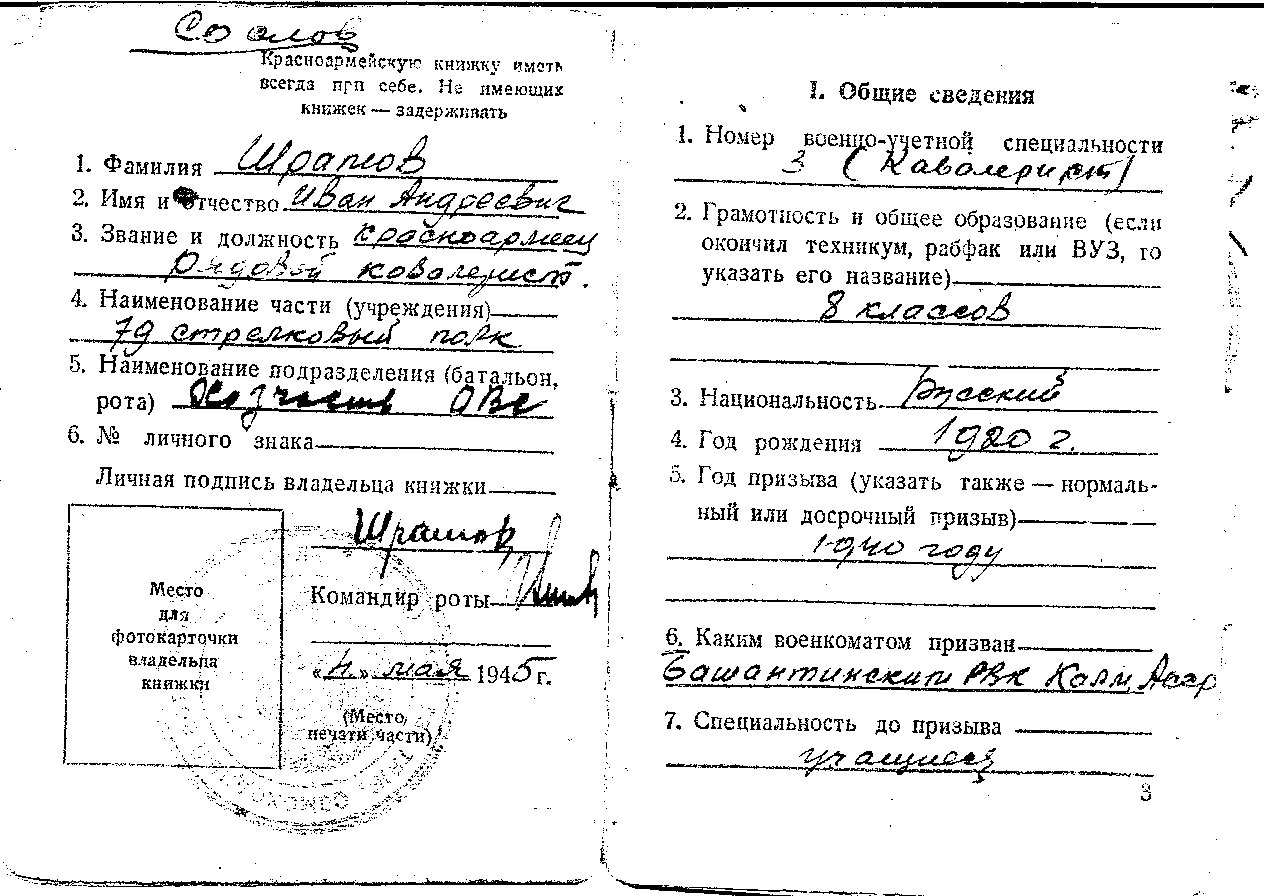 Со слов
Красноармейскую книжку иметь
всегда при себе. Не имеющих
книжек — задерживать
1. Фамилия Шрамов
2. Имя и отчество Иван Андреевич
3. Звание и должность Красноармеец
рядовой ковалерист.
4. Наименование части (учреждения)
79 стрелковый полк
5. Наименование подразделения (батальон,
рота) Хозчасть ОВС
6. № личного знака
Личная подпись владельца книжки
Шрамов
Место
для
фотокарточки
владельца
книжки
Командир роты
мая 1945 г.
(Место
печати части)
I. Общие сведения
1. Номер военно-учетной специальности
3 (Кавалерист)
2. Грамотность и общее образование (если
окончил техникум, рабфак или ВУЗ, то
указать его название)
8 классов
3. Национальность Русский
4. Год рождения 1920 г.
5. Год призыва (указать также — нормаль-
ный или досрочный призыв)
1940 году
6. Каким военкоматом призван
Башантинским РВК Калм. Асср
7. Специальность до призыва
учащиеся
3